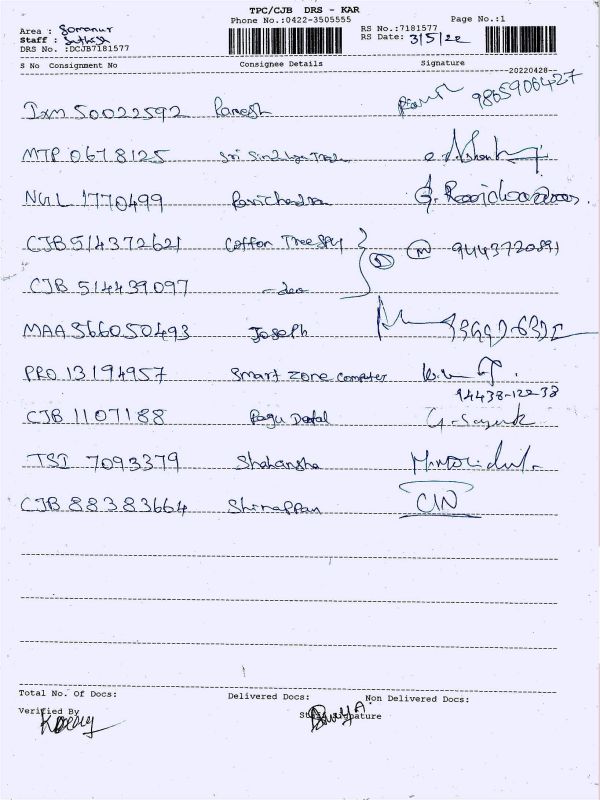 TPC/CJB DRS - KAR
Phone No.:0422-3505555 Page No.:1
Area : Somanur RS No.:7181577
Staff : Sathish RS Date: 3/5/22
DRS No. :DCJB7181577
S No Consignment No Consignee Details Signature
--20220428--
Ixm 50022592 Ramesh 9865906427
MTP 0678125 Sri
NGL 1770499 Ravichandra G. Ravichandran
CJB 514372621 Cotton Tree 9443720891
CJB 514439097 -do-
MAA 566050493 Joseph
PRO 13194957 Smart Zone Computer
94438-12238
CJB 1107188 Ragu Dental
TSI 7093379 Shahansha
CJB 88383664 Shinappan
Total No. Of Docs: Delivered Docs: Non Delivered Docs:
Verified By Staff Signature